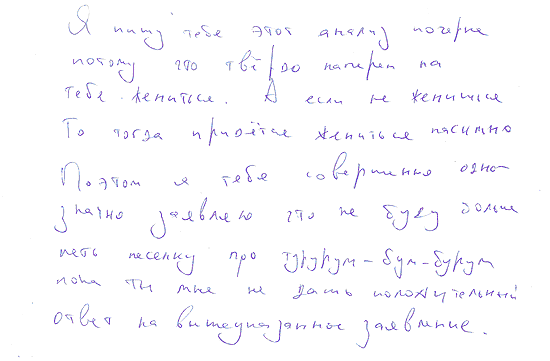 Я пишу тебе этот анализ почерка
потому что твёрдо намерен на
тебе жениться. А если не женишся
То тогда придётся жениться насимно
Поэтом я тебе совершенно одно-
значно заявляю что не буду больше
петь песенку про турурум-бум-бурум
пока ты мне не дашь положутельный
ответ на вышеуказанное заявление.